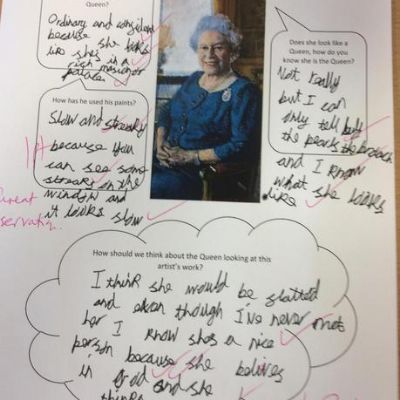 Queen?
Ordinary and confident
because she looks
like she's in a
rich mansion or
palace.
Does she look like a
Queen, how do you
know she is the Queen?
Not really
but I can
only tell by
the pearls the broach
and I know
what she looks
like
How has he used his paints?
Slow and streaky
because you
can see some
streaks on the
window and
it looks slow
How should we think about the Queen looking at this
artist's work?
I think she would be flatterd
and even though I've never met
her I know shes a nice
person because she belives
in god and she
thinks